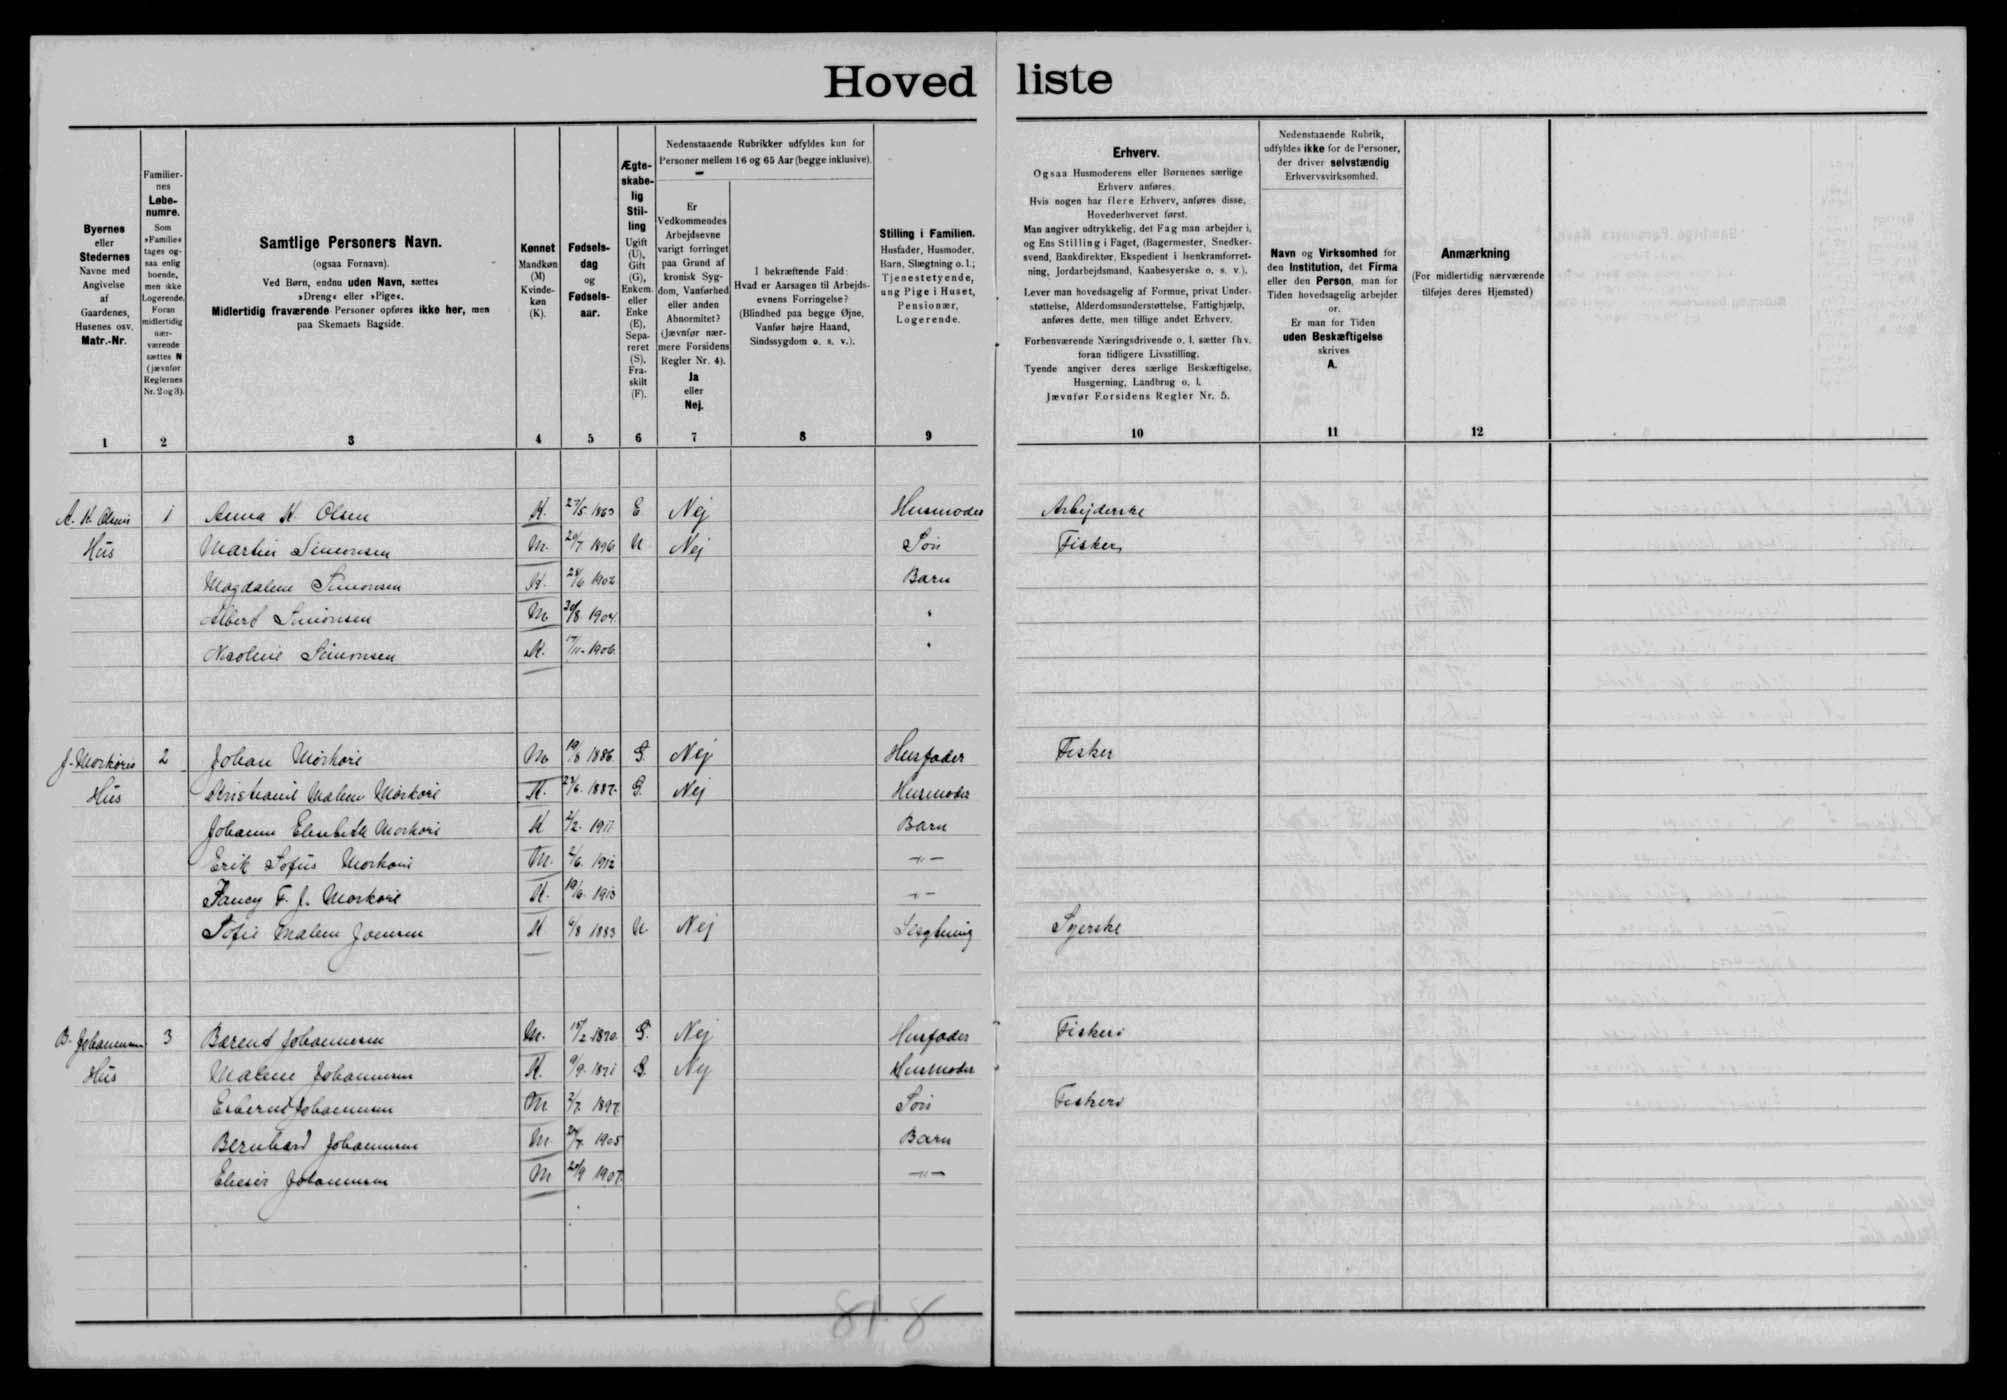 Hoved liste
Byernes
eller
Stedernes
Navne med
Angivelse
af
Gaardenes,
Husenes osv.
Matr.-Nr.
1
Familier-
nes
Løbe-
numre.
Som
»Familie«
tages og-
saa enlig
boende,
men ikke
Logerende.
Foran
midlertidig
nær-
værende
sættes N
(jævnfør
Reglernes
Nr. 2 og 3).
2
Samtlige Personers Navn.
(ogsaa Fornavn).
Ved Børn, endnu uden Navn, sættes
»Dreng« eller »Pige«.
Midlertidig fraværende Personer opføres ikke her, men
paa Skemaets Bagside.
3
Kønnet
Mandkøn
(M)
Kvinde-
køn
(K).
4
Fødsels-
dag
og
Fødsels-
aar.
5
Ægte-
skabe-
lig
Stil-
ling
Ugift
(U),
Gift
(G),
Enkem.
eller
Enke
(E),
Sepa-
reret
(S).
Fra-
skilt
(F).
6
Nedenstaaende Rubrikker udfyldes kun for
Personer mellem 16 og 65 Aar (begge inklusive).
Er
Vedkommendes
Arbejdsevne
varigt forringet
paa Grund af
kronisk Syg-
dom, Vanførhed
eller anden
Abnormitet?
(Jævnfør nær-
mere Forsidens
Regler Nr. 4).
Ja
eller
Nej.
7
I bekræftende Fald:
Hvad er Aarsagen til Arbejds-
evnens Forringelse?
(Blindhed paa begge Øjne,
Vanfør højre Haand,
Sindssygdom o. s. v.).
8
Stilling i Familien.
Husfader, Husmoder,
Barn, Slægtning o. l.;
Tjenestetyende,
ung Pige i Huset,
Pensionær,
Logerende.
9
Erhverv.
Ogsaa Husmoderens eller Børnenes særlige
Erhverv anføres.
Hvis nogen har flere Erhverv, anføres disse,
Hovederhvervet først.
Man angiver udtrykkelig, det Fag man arbejder i,
og Ens Stilling i Faget, (Bagermester, Snedker-
svend, Bankdirektør, Ekspedient i Isenkramforret-
ning, Jordarbejdsmand, Kaabesyerske o. s. v.).
Lever man hovedsagelig af Formue, privat Under-
støttelse, Alderdomsunderstøttelse, Fattighjælp,
anføres dette, men tillige andet Erhverv.
Forhenværende Næringsdrivende o. l. sætter fhv.
foran tidligere Livsstilling.
Tyende angiver deres særlige Beskæftigelse,
Husgerning, Landbrug o. l.
Jævnfør Forsidens Regler Nr. 5.
10
Nedenstaaende Rubrik,
udfyldes ikke for de Personer,
der driver selvstændig
Erhvervsvirksomhed.
Navn og Virksomhed for
den Institution, det Firma
eller den Person, man for
Tiden hovedsagelig arbejder
for.
Er man for Tiden
uden Beskæftigelse
skrives
A.
11
Anmærkning
(For midlertidig nærværende
tilføjes deres Hjemsted)
12
A. K. Olsens 1 Anna K. Olsen K. 27/5 1863 E Nej Husmoder Arbejderske
Hus Martin Simonsen M. 1896 U Nej Søn Fisker
Magdalene Simonsen K. 28/6 1902 Barn
Albert Simonsen M 30/8 1904 "
Nicoline Simonsen K. 17/11 1906 "
J. Morkøres 2 Johan Mørkøre M 1886 G. Nej Husfader Fisker
Hus Kristiane Malene Mørkøre K. 1887 G. Nej Husmoder
Johanne Elisabeth Morkøre K 2/2 1911 Barn
Erik Sofus Morkøre M. 2/6 1912 -"-
Fancy F. J. Morkøre K. 19/6 1913 -"-
Sofie Malene Joensen K 6/8 1883 U Nej Slægtning Syerske
B. Johannesen 3 Barend Johannesen M. 15/2 1870 G. Nej Husfader Fisker
Hus Malene Johannesen K. 9/9 1871 G. Nej Husmoder
Esbernd Johannesen M 2/7 1897 Søn Fisker
Bernhard Johannesen M 1905 Barn
Elieser Johannesen M 20/9 1907 -"-
81. 8